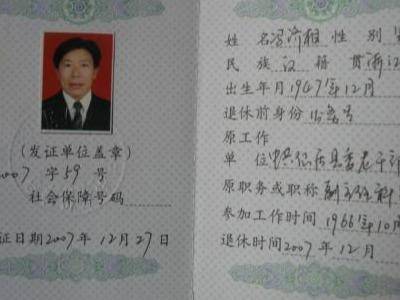 (发证单位盖章)
007 字 59 号
社会保障号码
证日期2007年 12月 27日
姓 名 冯济根 性 别
民 族 汉 籍 贯 浙江
出生年月 1947年12月
退休前身份
原工作
单 位 中共仙居县委老干部
原职务或职称 副主任科
参加工作时间 1966年10月
退休时间 2007年 12月